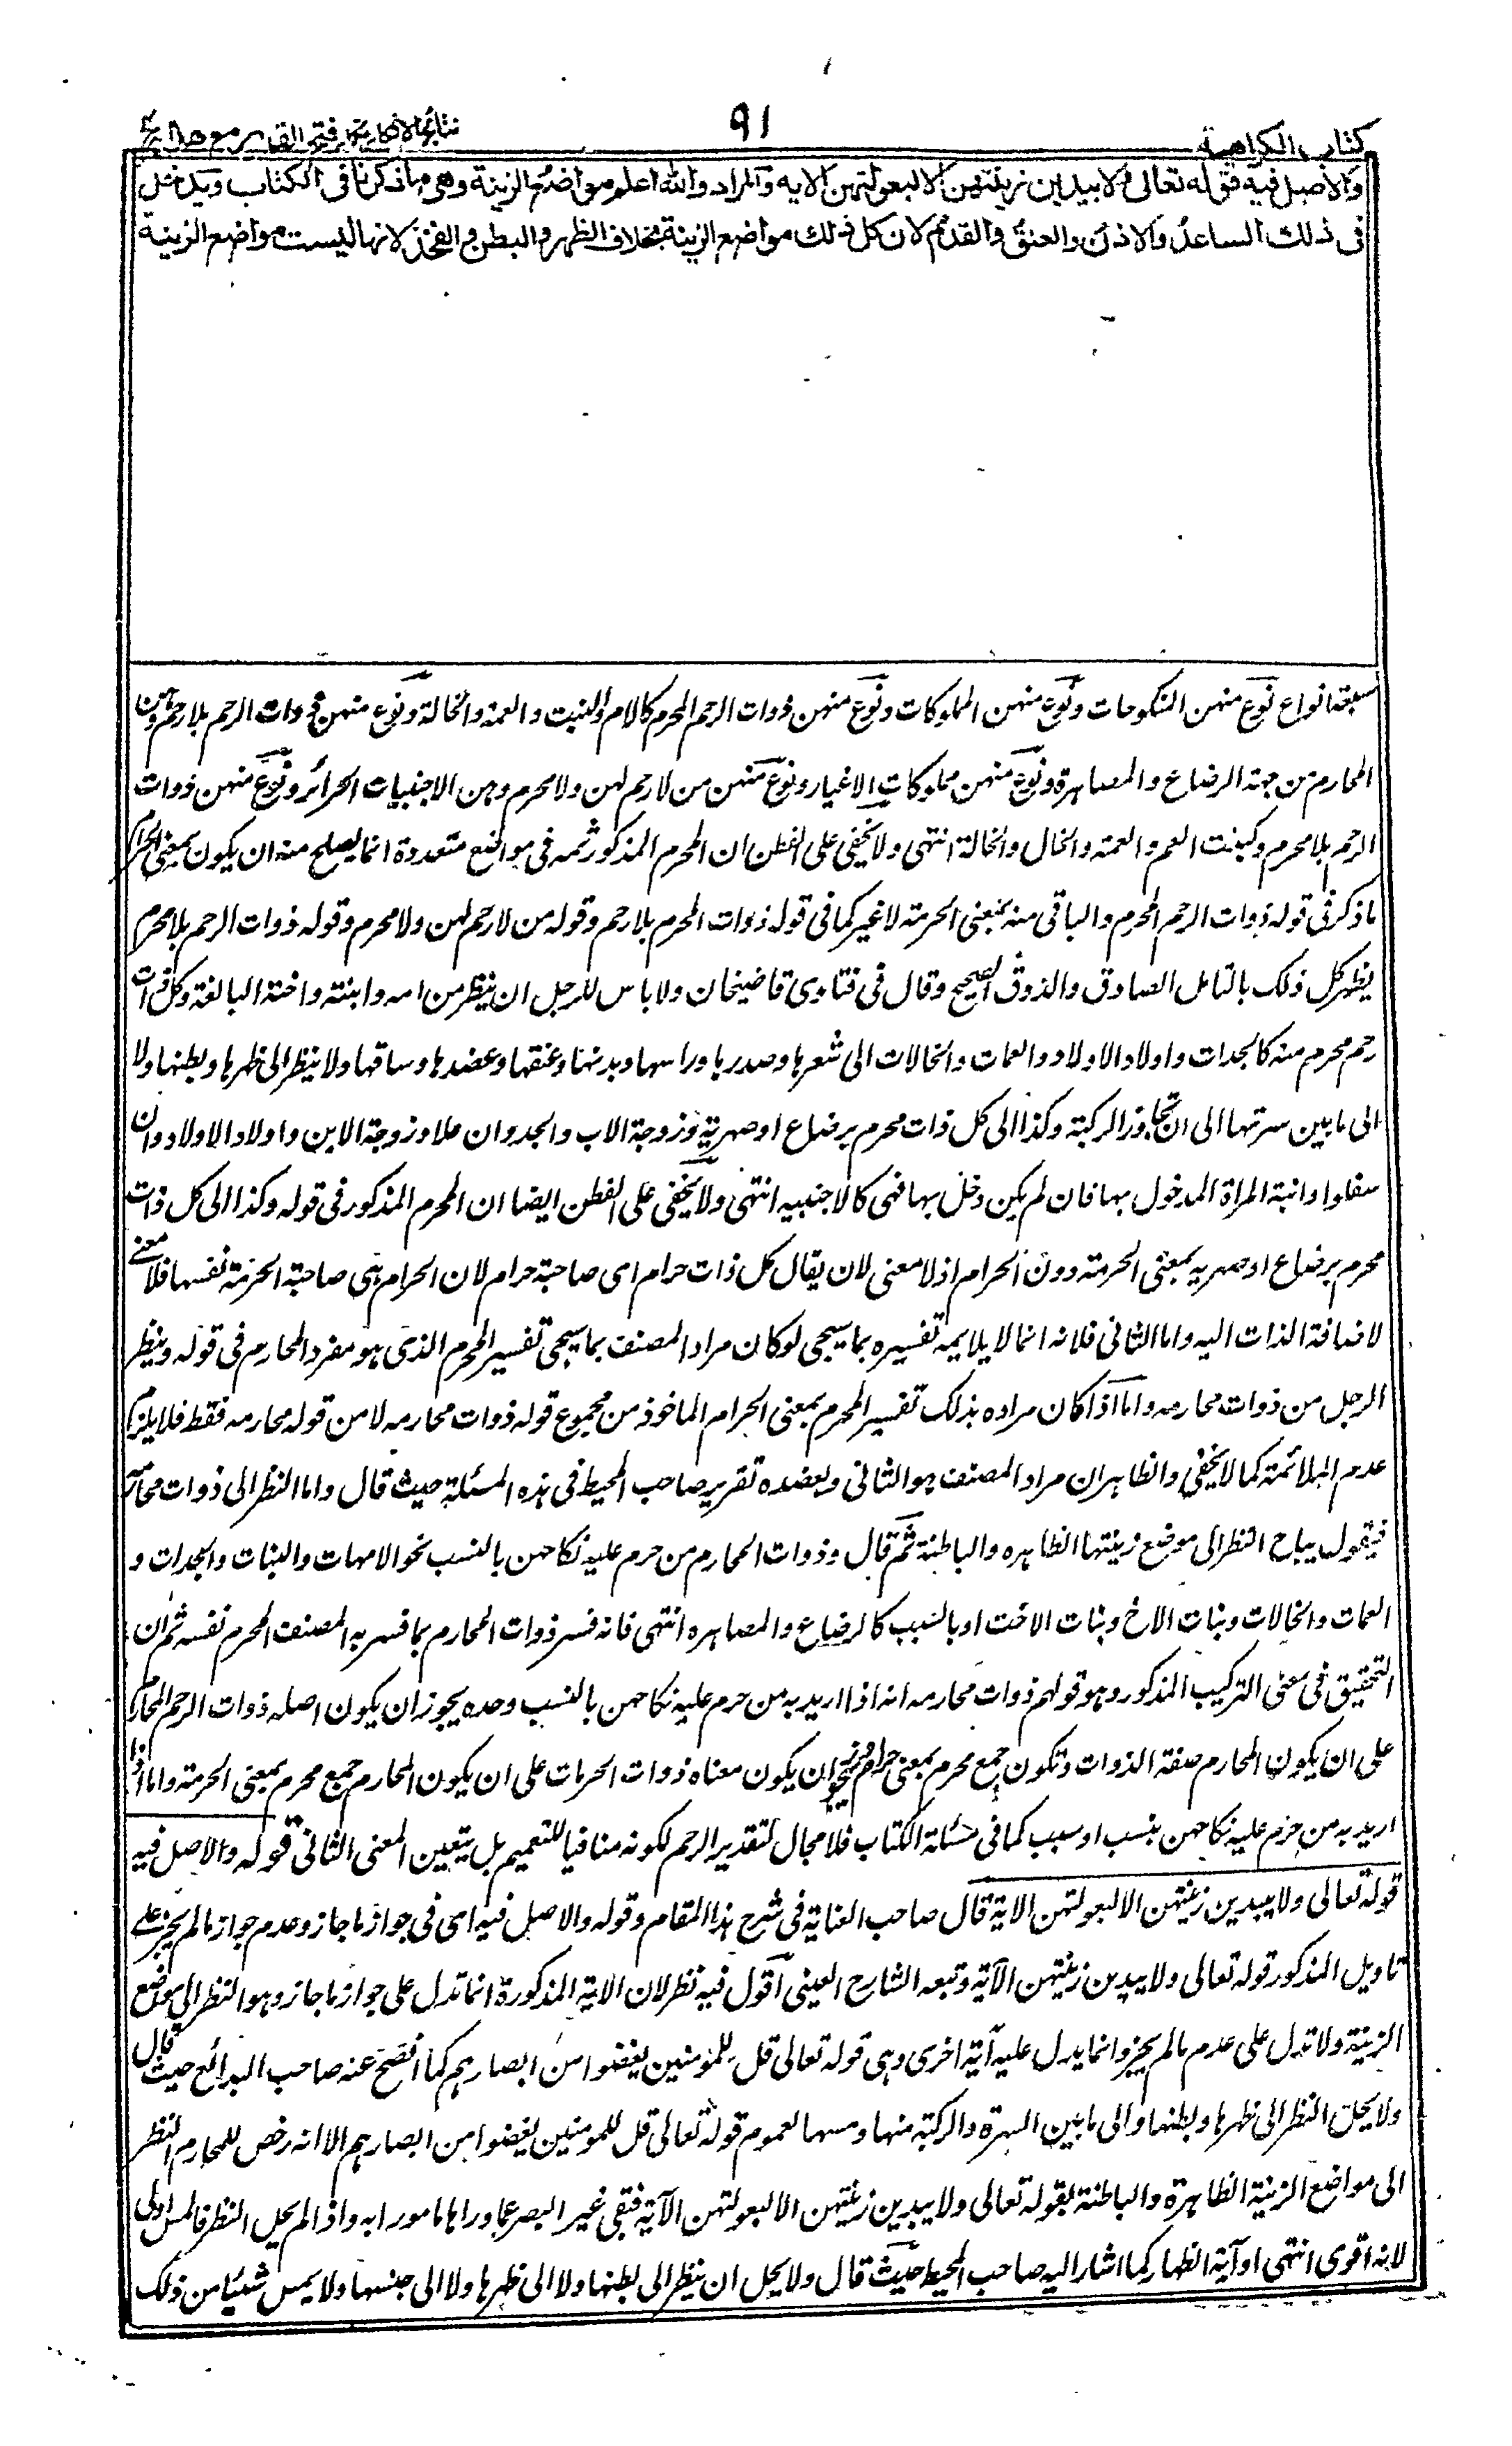 كتاب الكراهية
٩١
نتائج الافكار تكملة فتح القدير مع هداية ج ٤
والاصل فيه قوله تعالى ولا يبدين زينتهن الا لبعولتهن الآيه والمراد والله اعلم مواضع الزينة وهى ما ذكرنا فى الكتاب ويدخل
فى ذلك الساعد والاذن والعنق والقدم لان كل ذلك مواضع الزينة بخلاف الظهر والبطن والفخذ لانها ليست مواضع الزينة
سبعة انواع نوع منهن المنكوحات ونوع منهن المملوكات ونوع منهن ذوات الرحم المحرم كالام والبنت والعمة والخالة ونوع منهن ذوات الرحم بلا رحم وهن
المحارم من جهة الرضاع والمصاهرة ونوع منهن مملوكات الاغيار ونوع منهن من لا رحم لهن ولا محرم وهن الاجنبيات الحرائر ونوع منهن ذوات
الرحم بلا محرم وكبنت العم والعمة والخال والخالة انتهى ولا يخفى على الفطن ان المحرم المذكور ثمه فى مواضع متعددة انما يصلح منه ان يكون بمعنى الحرام
ما ذكر فى قوله ذوات الرحم المحرم والباقى منه بمعنى الحرمة لا غير كما فى قوله ذوات المحرم بلا رحم وقوله من لا رحم لهن ولا محرم وقوله ذوات الرحم بلا محرم
يظهر كل ذلك بالتامل الصادق والذوق الصحيح وقال فى فتاوى قاضيخان ولا باس للرجل ان ينظر من امه وابنته واخته البالغة وكل ذات
رحم محرم منه كالجدات واولاد الاولاد والعمات والخالات الى شعرها وصدرها وراسها وبدنها وعنقها وعضدها وساقها ولا ينظر الى ظهرها وبطنها ولا
الى ما بين سرتها الى ان تجاوز الركبة وكذا الى كل ذات محرم برضاع او صهرية وزوجة الاب والجد وان علا وزوجة الابن واولاد الاولاد وان
سفلوا وابنة المراة المدخول بها فان لم يكن دخل بها فهى كالاجنبيه انتهى ولا يخفى على الفطن ايضا ان المحرم المذكور فى قوله وكذا الى كل ذات
محرم برضاع او صهريه بمعنى الحرمة دون الحرام اذ لا معنى لان يقال كل ذات حرام اى صاحبة حرام لان الحرام هى صاحبة الحرمة نفسها فلا معنى
لاضافة الذات اليه واما الثانى فلانه انما لا يلايمه تفسيره بما سيجى لو كان مراد المصنف بما سيجى تفسير المحرم الذى هو مفرد المحارم فى قوله وينظر
الرجل من ذوات محارمه واما اذا كان مراده بذلك تفسير المحرم بمعنى الحرام الماخوذ من مجموع قوله ذوات محارمه لا من قوله محارمه فقط فلا يلزم
عدم الملائمة كما لا يخفى والظاهر ان مراد المصنف هو الثانى ويعضده تقرير صاحب المحيط فى هذه المسئلة حيث قال واما النظر الى ذوات محارمه
فيقول يباح النظر الى موضع زينتها الظاهره والباطنة ثم قال وذوات المحارم من حرم عليه نكاحهن بالنسب نحو الامهات والبنات والجدات و
العمات والخالات وبنات الاخ وبنات الاخت او بالسبب كالرضاع والمصاهره انتهى فانه فسر ذوات المحارم بما فسر به المصنف المحرم نفسه ثم ان
التحقيق فى معنى التركيب المذكور وهو قولهم ذوات محارمه انه اذا اريد به من حرم عليه نكاحهن بالنسب وحده يجوز ان يكون اصله ذوات الرحم المحارم
على ان يكون المحارم صفة الذوات وتكون جمع محرم بمعنى حرام ويجوز ان يكون معناه ذوات الحرمات على ان يكون المحارم جمع محرم بمعنى الحرمة واما اذا
اريد به من حرم عليه نكاحهن بنسب او سبب كما فى مسئلة الكتاب فلا مجال لتقدير الرحم لكونه منافيا للتعميم بل يتعين المعنى الثانى قوله والاصل فيه
قوله تعالى ولا يبدين زينتهن الا لبعولتهن الاية قال صاحب العناية فى شرح هذا المقام وقوله والاصل فيه اى فى جواز ما جاز وعدم جواز ما لم يجز على
تاويل المذكور قوله تعالى ولا يبدين زينتهن الآية وتبعه الشارح العينى اقول فيه نظر لان الاية المذكورة انما تدل على جواز ما جاز وهو النظر الى مواضع
الزينة ولا تدل على عدم ما لم يجز وانما يدل عليه آية اخرى وهى قوله تعالى قل للمؤمنين يغضوا من ابصارهم كما افصح عنه صاحب البدائع حيث قال
ولا يحل النظر الى ظهرها وبطنها والى ما بين السرة والركبة منها ومسها لعموم قوله تعالى قل للمومنين يغضوا من ابصارهم الا انه رخص للمحارم النظر
الى مواضع الزينة الظاهرة والباطنة بقوله تعالى ولا يبدين زينتهن الا لبعولتهن الآية فبقى غير البصر عما وراها مامورا به واذا لم يحل النظر فالمس اولى
لانه اقوى انتهى او آية الظهار كما اشار اليه صاحب المحيط حيث قال ولا يحل ان ينظر الى بطنها ولا الى ظهرها ولا الى جنبها ولا يمس شيئا من ذلك